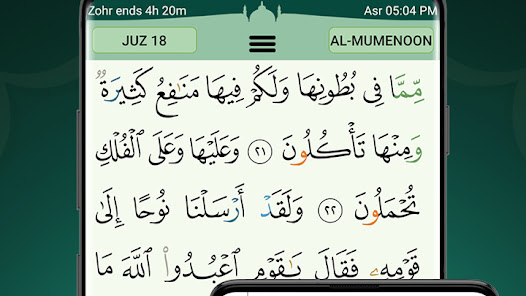 Zohr ends 4h 20m Asr 05:04 PM
JUZ 18 AL-MUMENOON
مِّمَّا فِي بُطُونِهَا وَلَكُمْ فِيهَا مَنَٰفِعُ كَثِيرَةٌ
وَمِنْهَا تَأْكُلُونَ ٢١ وَعَلَيْهَا وَعَلَى ٱلْفُلْكِ
تُحْمَلُونَ ٢٢ وَلَقَدْ أَرْسَلْنَا نُوحًا إِلَىٰ
قَوْمِهِۦ فَقَالَ يَٰقَوْمِ ٱعْبُدُواْ ٱللَّهَ مَا